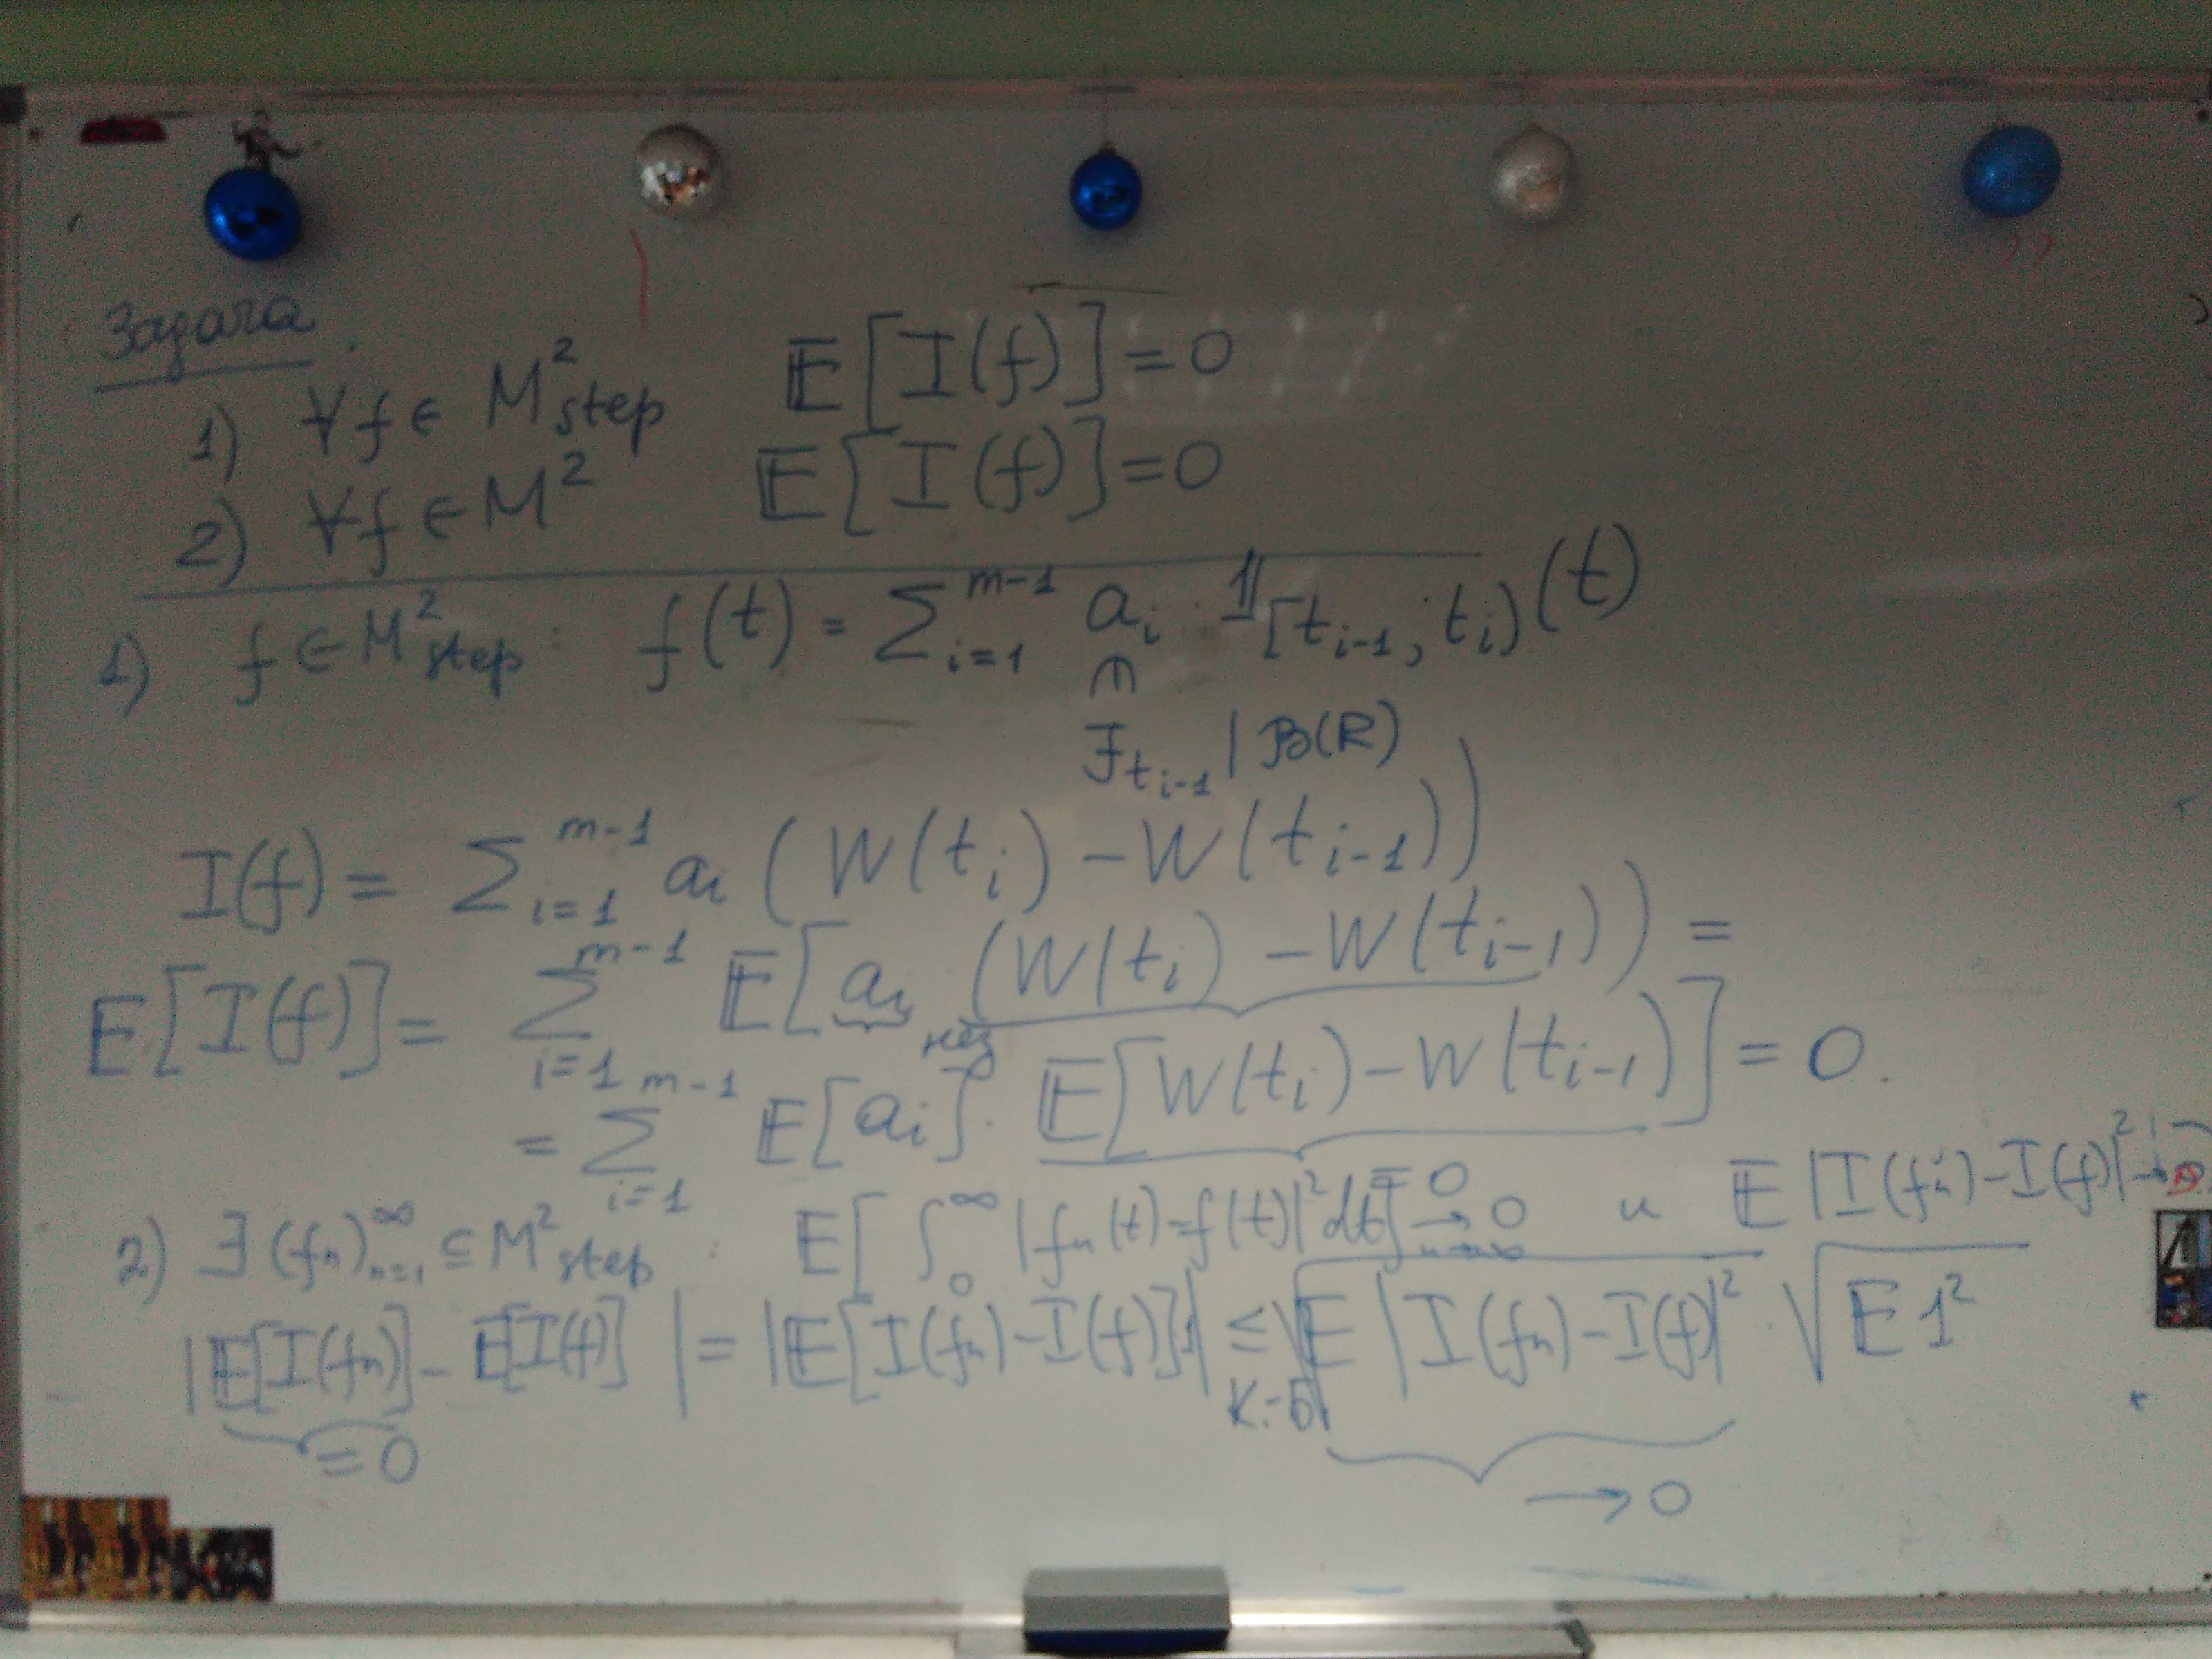 Задача
1) ∀f ∈ M²_step E[I(f)] = 0
2) ∀f ∈ M² E[I(f)] = 0
1) f ∈ M²_step : f(t) = Σ_{i=1}^{m-1} a_i · 𝟙_{[t_{i-1}; t_i)}(t)
∈
F_{t_{i-1}} | B(R)
I(f) = Σ_{i=1}^{m-1} a_i (W(t_i) - W(t_{i-1}))
E[I(f)] = Σ_{i=1}^{m-1} E[a_i (W(t_i) - W(t_{i-1})) =
нез
= Σ_{i=1}^{m-1} E[a_i] · E[W(t_i) - W(t_{i-1})] = 0.
= 0
2) ∃ (f_n)_{n=1}^∞ ⊆ M²_step : E[∫_0^∞ |f_n(t) - f(t)|² dt] →_{n→∞} 0 и E |I(f_n) - I(f)|² → 0
|E[I(f_n)] - E[I(f)]| = |E[I(f_n) - I(f)]| ≤ √(E |I(f_n) - I(f)|²) · √(E 1²)
К.-Б
= 0
→ 0